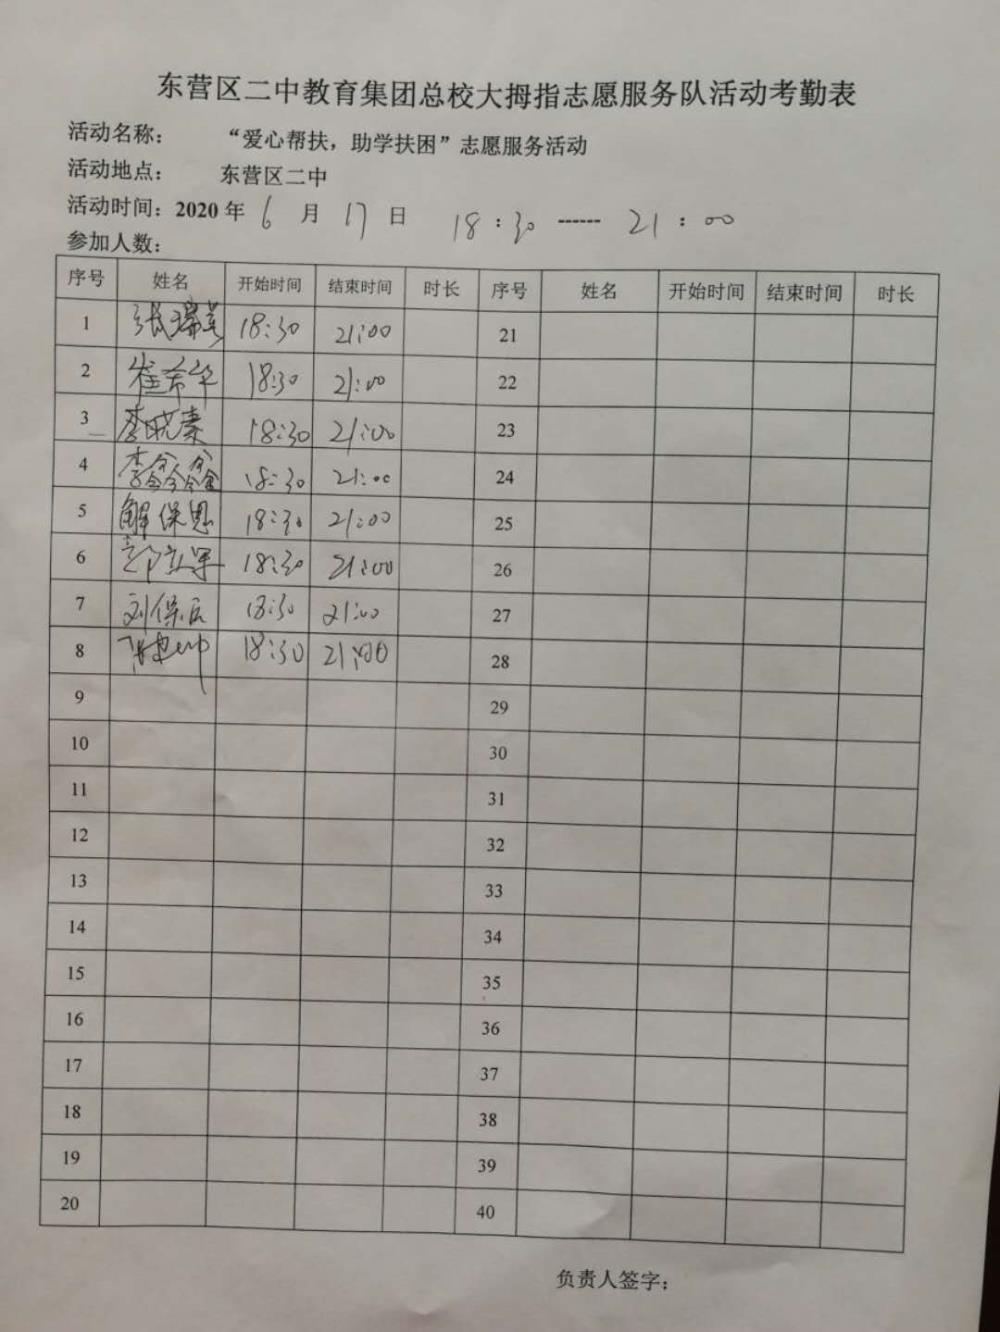 东营区二中教育集团总校大拇指志愿服务队活动考勤表
活动名称： “爱心帮扶，助学扶困”志愿服务活动
活动地点： 东营区二中
活动时间：2020 年 6 月 17 日 18：30 ------ 21：00
参加人数：
序号 姓名 开始时间 结束时间 时长 序号 姓名 开始时间 结束时间 时长
1 张瑞英 18:30 21:00 21
2 崔希华 18:30 21:00 22
3 李晓秦 18:30 21:00 23
4 李鑫鑫 18:30 21:00 24
5 解保恩 18:30 21:00 25
6 郭立军 18:30 21:00 26
7 刘保 18:30 21:00 27
8 18:30 21:00 28
9 29
10 30
11 31
12 32
13 33
14 34
15 35
16 36
17 37
18 38
19 39
20 40
负责人签字：